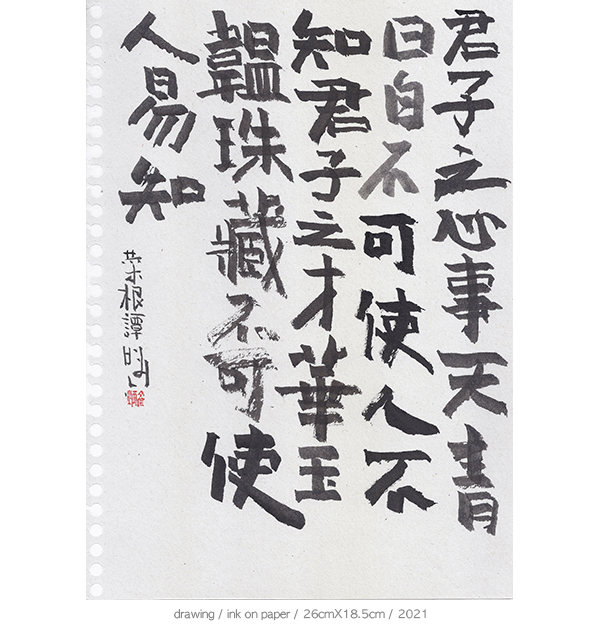 君子之心事天青
日白不可使人不
知君子之才華玉
韞珠藏不可使
人易知
菜根譚
drawing / ink on paper / 26cmX18.5cm / 2021